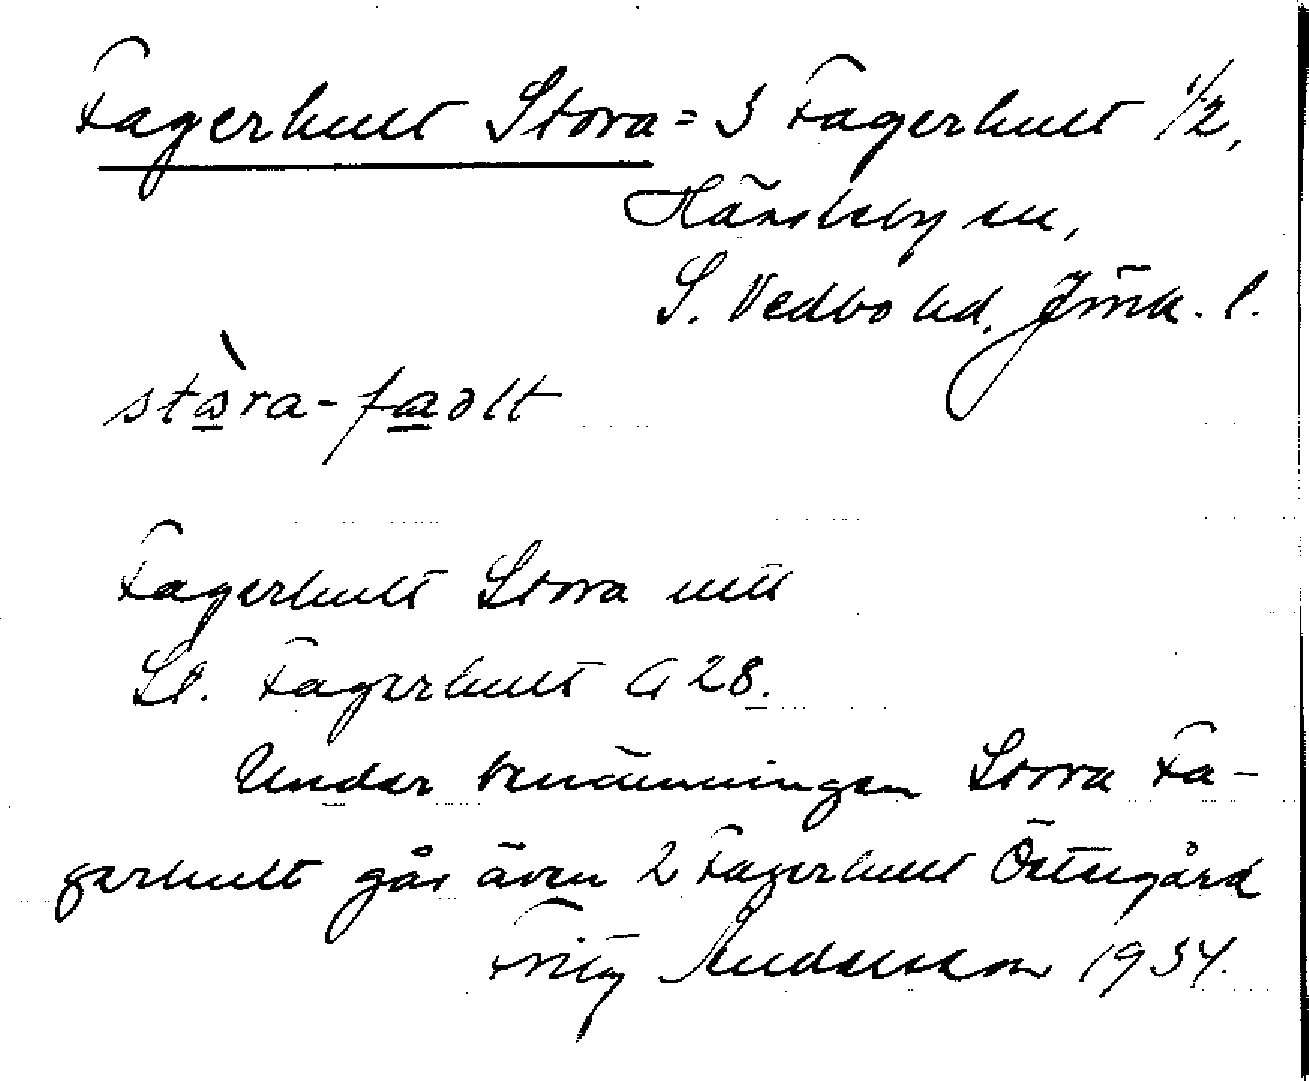 Fagerhult Stora = 3 Fagerhult 1/2,
Händsby sn,
S. Vedbo hd. Jönk. l.
stòra-faəlt
Fagerhult Stora mtl
St. Fagerhult G 28.
Under benämningen Stora Fa-
gerhult går även 2 Fagerhult Östergård
Fritz Andersson 1934.